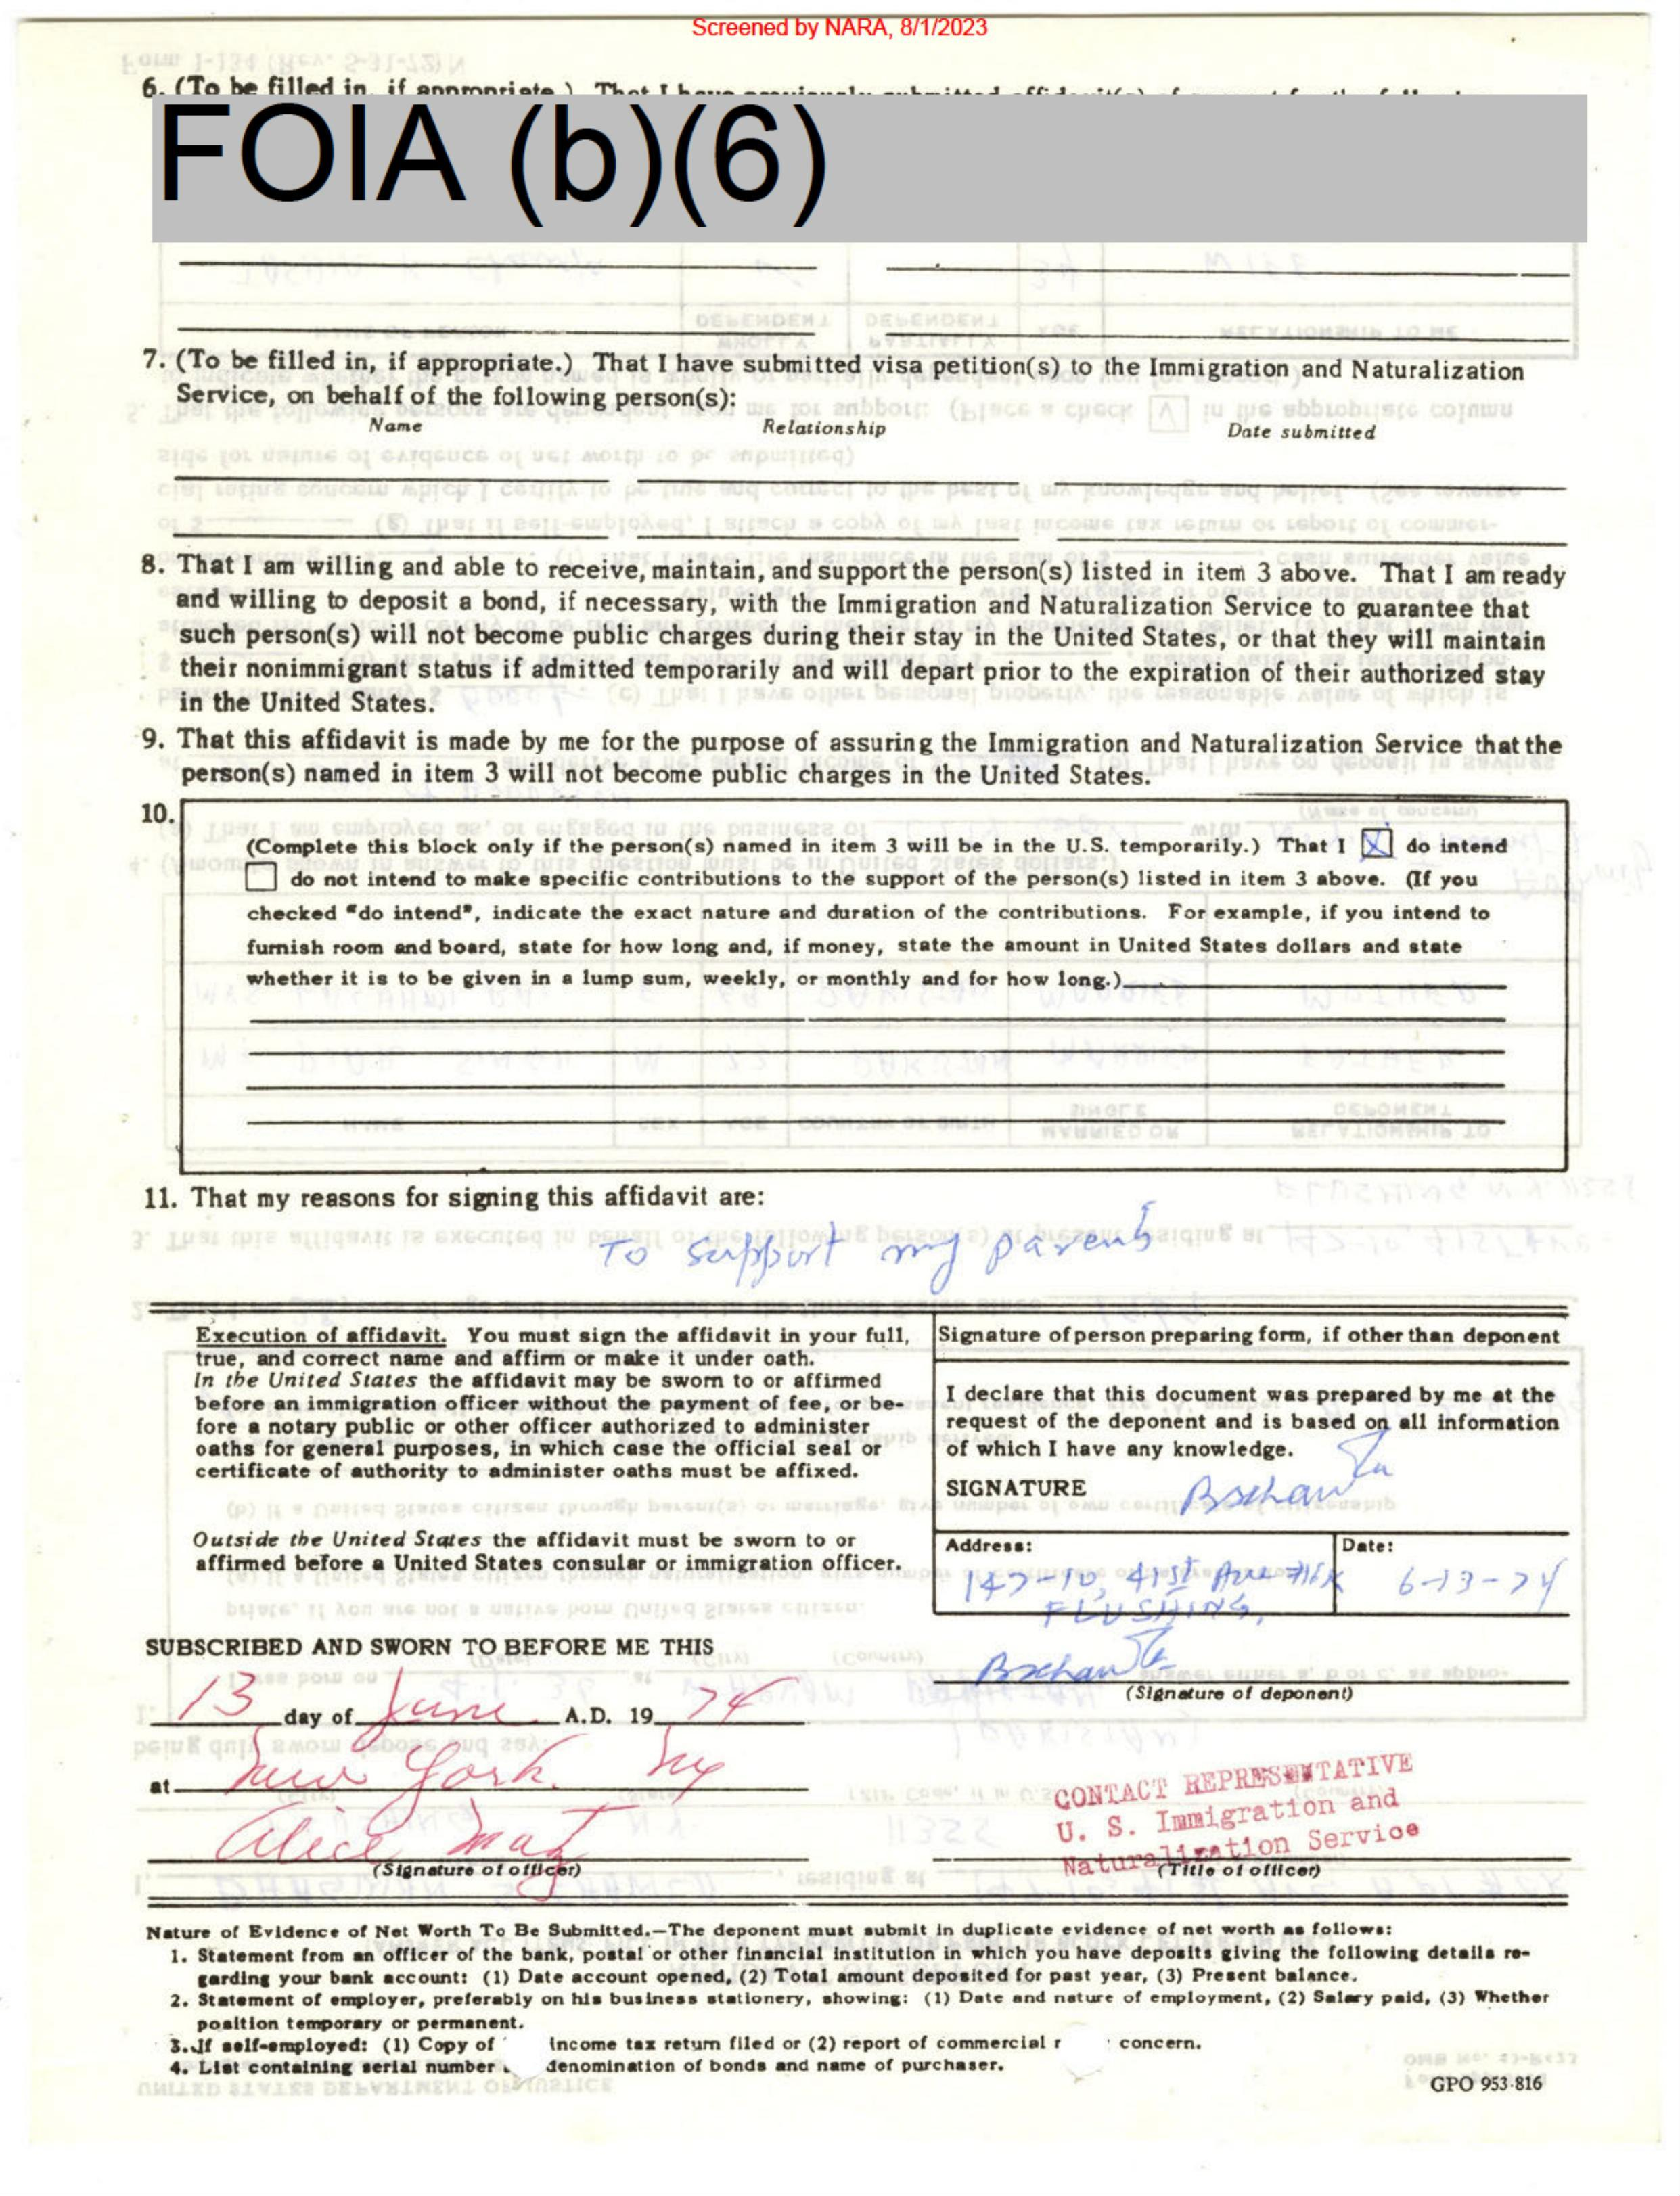 Screened by NARA, 8/1/2023
6. (To be filled in, if appropriate.) That I have previously submitted affidavit(s) of support for the
FOIA (b)(6)
7. (To be filled in, if appropriate.) That I have submitted visa petition(s) to the Immigration and Naturalization
Service, on behalf of the following person(s):
Name Relationship Date submitted
8. That I am willing and able to receive, maintain, and support the person(s) listed in item 3 above. That I am ready
and willing to deposit a bond, if necessary, with the Immigration and Naturalization Service to guarantee that
such person(s) will not become public charges during their stay in the United States, or that they will maintain
their nonimmigrant status if admitted temporarily and will depart prior to the expiration of their authorized stay
in the United States.
9. That this affidavit is made by me for the purpose of assuring the Immigration and Naturalization Service that the
person(s) named in item 3 will not become public charges in the United States.
10.
(Complete this block only if the person(s) named in item 3 will be in the U.S. temporarily.) That I X do intend
do not intend to make specific contributions to the support of the person(s) listed in item 3 above. (If you
checked "do intend", indicate the exact nature and duration of the contributions. For example, if you intend to
furnish room and board, state for how long and, if money, state the amount in United States dollars and state
whether it is to be given in a lump sum, weekly, or monthly and for how long.)
11. That my reasons for signing this affidavit are:
To support my parents
Execution of affidavit. You must sign the affidavit in your full,
true, and correct name and affirm or make it under oath.
In the United States the affidavit may be sworn to or affirmed
before an immigration officer without the payment of fee, or be-
fore a notary public or other officer authorized to administer
oaths for general purposes, in which case the official seal or
certificate of authority to administer oaths must be affixed.
Outside the United States the affidavit must be sworn to or
affirmed before a United States consular or immigration officer.
Signature of person preparing form, if other than deponent
I declare that this document was prepared by me at the
request of the deponent and is based on all information
of which I have any knowledge.
SIGNATURE
Address: Date:
147-10, 41st Ave 6-13-74
FLUSHING,
SUBSCRIBED AND SWORN TO BEFORE ME THIS
(Signature of deponent)
13 day of June A.D. 19 74
at New York NY
CONTACT REPRESENTATIVE
U. S. Immigration and
Naturalization Service
Alice
(Signature of officer) (Title of officer)
Nature of Evidence of Net Worth To Be Submitted.—The deponent must submit in duplicate evidence of net worth as follows:
1. Statement from an officer of the bank, postal or other financial institution in which you have deposits giving the following details re-
garding your bank account: (1) Date account opened, (2) Total amount deposited for past year, (3) Present balance.
2. Statement of employer, preferably on his business stationery, showing: (1) Date and nature of employment, (2) Salary paid, (3) Whether
position temporary or permanent.
3. If self-employed: (1) Copy of income tax return filed or (2) report of commercial concern.
4. List containing serial number denomination of bonds and name of purchaser.
GPO 953-816